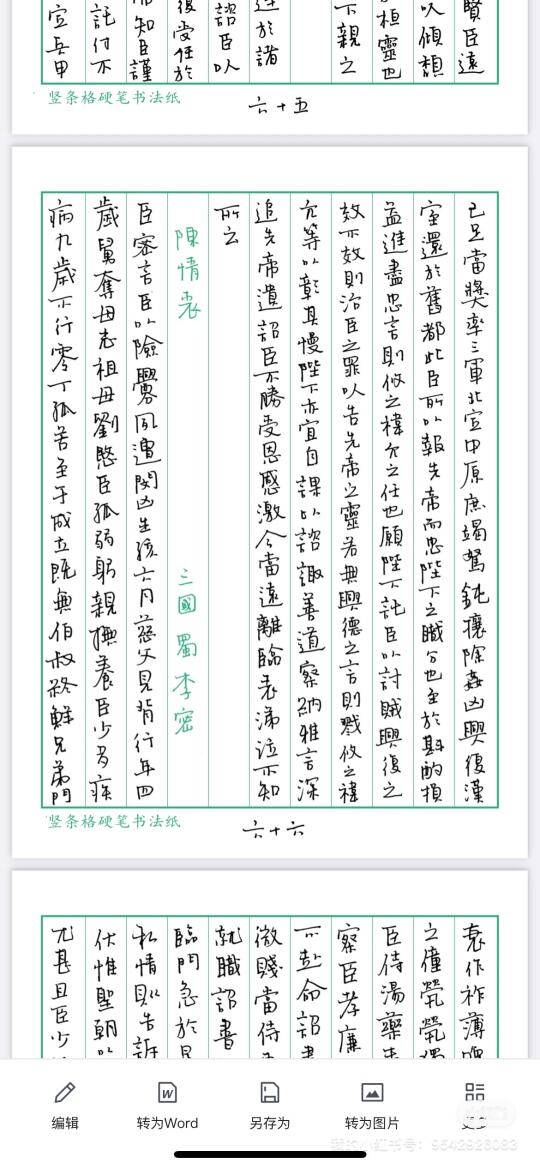 賢臣遠
以傾頹
桓靈也
下親之
於諸
諮臣以
後受任於
知臣謹
託付不
兵甲
竖条格硬笔书法纸
六十五
已足當獎率三軍北定中原庶竭駑鈍攘除姦凶興復漢
室還於舊都此臣所以報先帝而忠陛下之職分也至於斟酌損
益進盡忠言則攸之禕允之任也願陛下託臣以討賊興復之
效不效則治臣之罪以告先帝之靈若無興德之言則戮攸之禕
允等以彰其慢陛下亦宜自課以諮諏善道察納雅言深
追先帝遺詔臣不勝受恩感激今當遠離臨表涕泣不知
所云
陳情表 三國 蜀 李密
臣密言臣以險釁夙遭閔凶生孩六月慈父見背行年四
歲舅奪母志祖母劉愍臣孤弱躬親撫養臣少多疾
病九歲不行零丁孤苦至于成立既無伯叔終鮮兄弟門
竖条格硬笔书法纸
六十六
衰作祚薄
之僮煢煢
臣侍湯藥
察臣孝廉
不赴命詔書
微賤當侍
就職詔書
臨門急於
私情則告訴
伏惟聖朝以
尤甚且臣少
编辑
转为Word
另存为
转为图片
更多
我的小红书号：9542926083